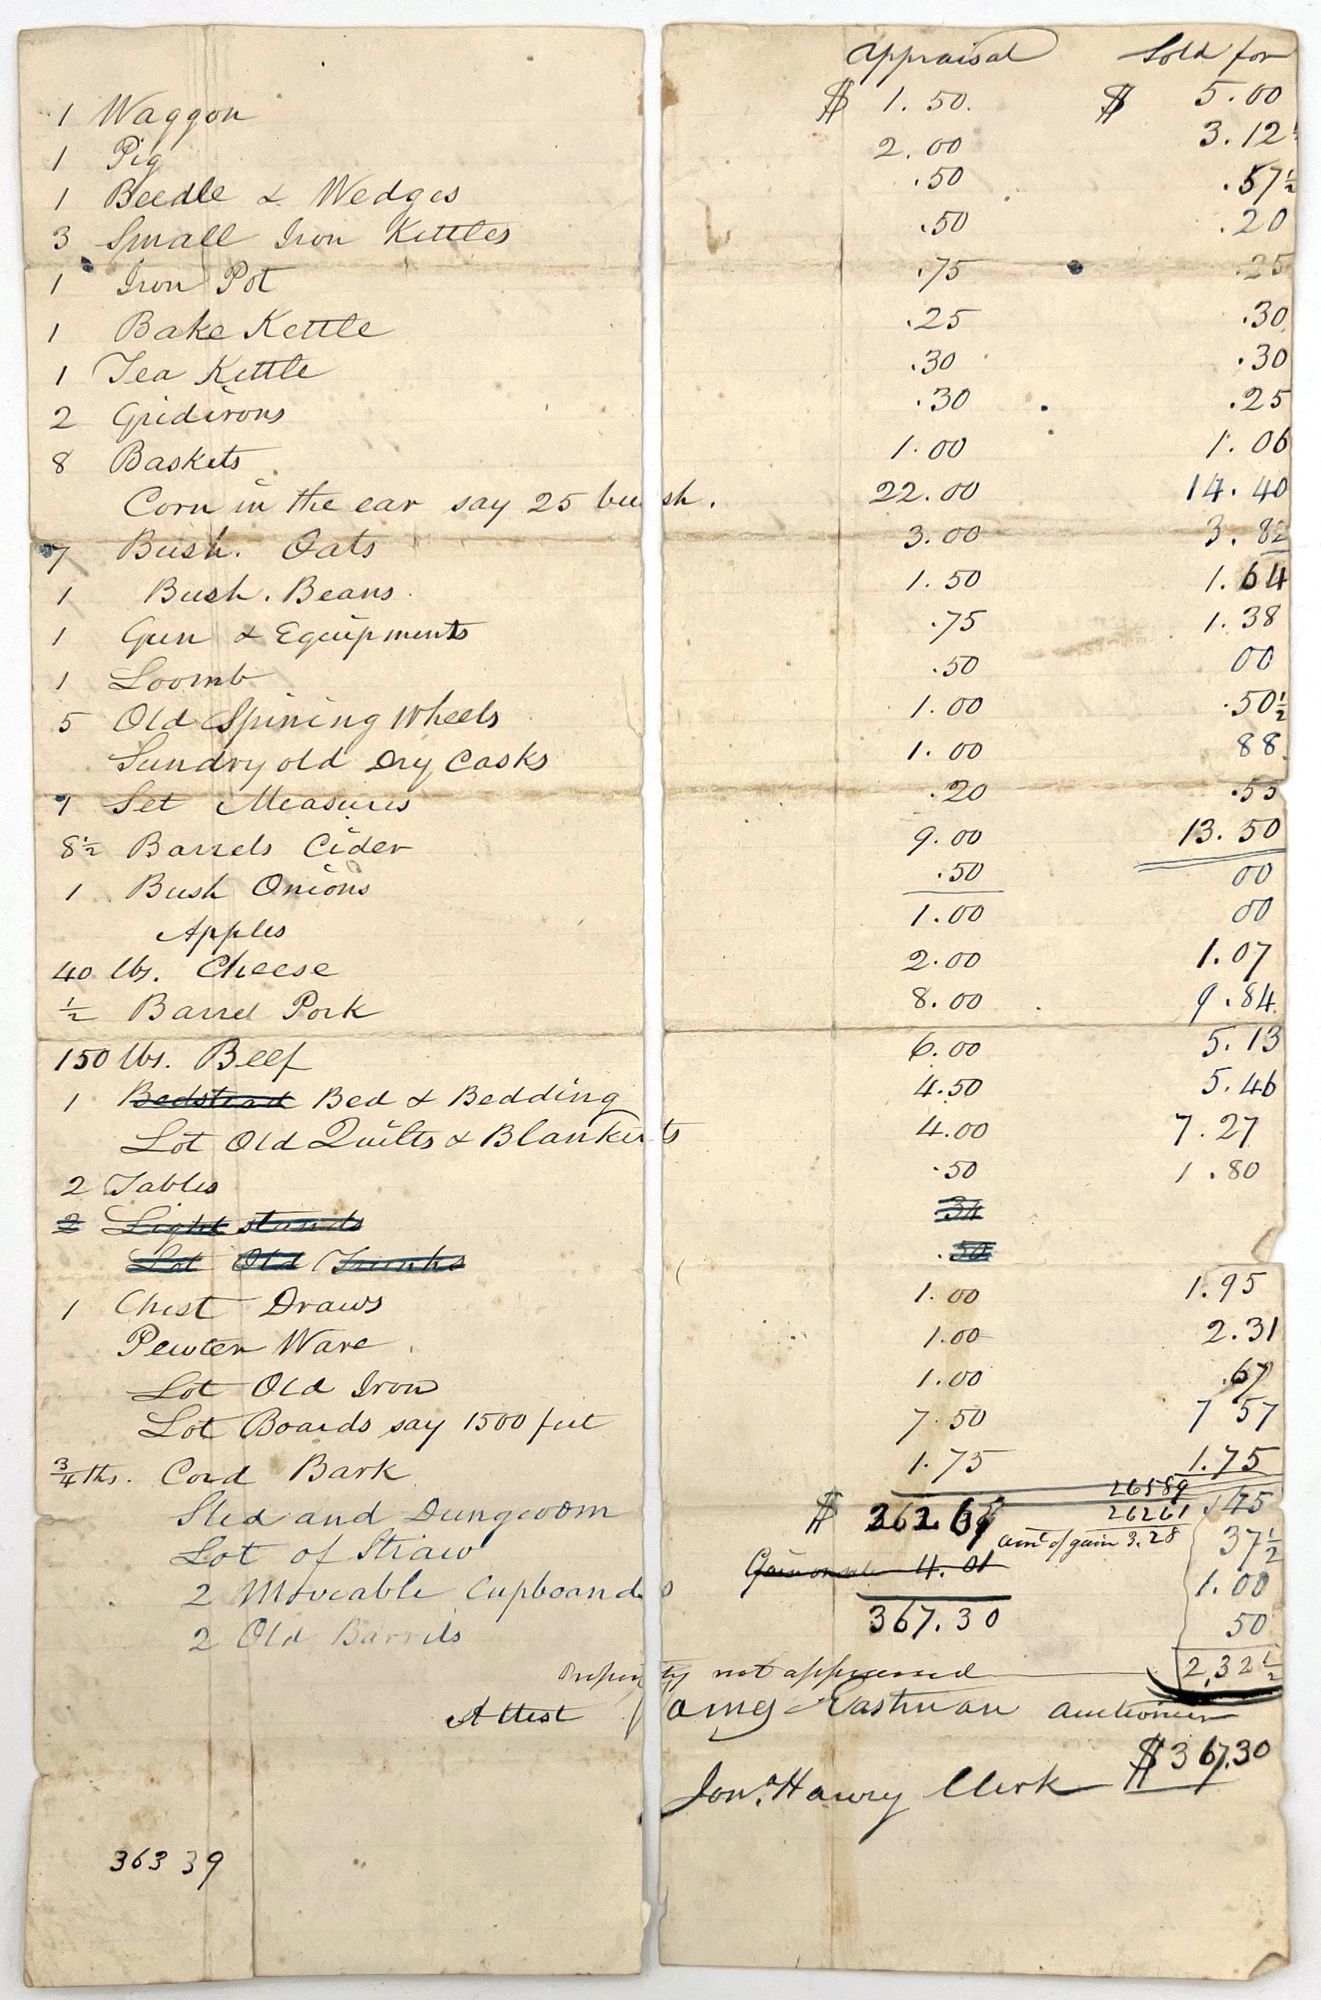 Appraisal Sold for
1 Waggon $ 1.50. $ 5.00
1 Pig 2.00 3.12½
1 Beedle & Wedges .50 .57½
3 Small Iron Kettles .50 .20
1 Iron Pot .75 .25
1 Bake Kettle .25 .30
1 Tea Kettle .30 .30
2 Gridirons .30 .25
8 Baskets 1.00 1.06
Corn in the ear say 25 bush. 22.00 14.40
7 Bush. Oats 3.00 3.82
1 Bush. Beans 1.50 1.64
1 Gun & Equipments .75 1.38
1 Loomb .50 00
5 Old Spining Wheels 1.00 .50½
Sundry old Dry Casks 1.00 88
1 Set Measures .20 .55
8½ Barrels Cider 9.00 13.50
1 Bush Onions .50 00
Apples 1.00 00
40 lbs. Cheese 2.00 1.07
½ Barrel Pork 8.00 9.84
150 lbs. Beef 6.00 5.13
1 Bedstead Bed & Bedding 4.50 5.46
Lot Old Quilts & Blankets 4.00 7.27
2 Tables .50 1.80
2 Light stands 34
Lot Old Trunks .50
1 Chest Draws 1.00 1.95
Pewter Ware 1.00 2.31
Lot Old Iron 1.00 .67
Lot Boards say 1500 feet 7.50 7 57
¾ths. Cord Bark 1.75 1.75
26589
Sled and Dungroom $ 362.61 26261 45
Lot of Straw amt of gain 3.28 37½
2 Moveable Cupboards Gain on sale 4.01 1.00
2 Old Barrils 367.30 50
Property not appressed 2,32½
Attest James Eastman auctioneer
$367.30
Jona. Hawry Clerk
363 39